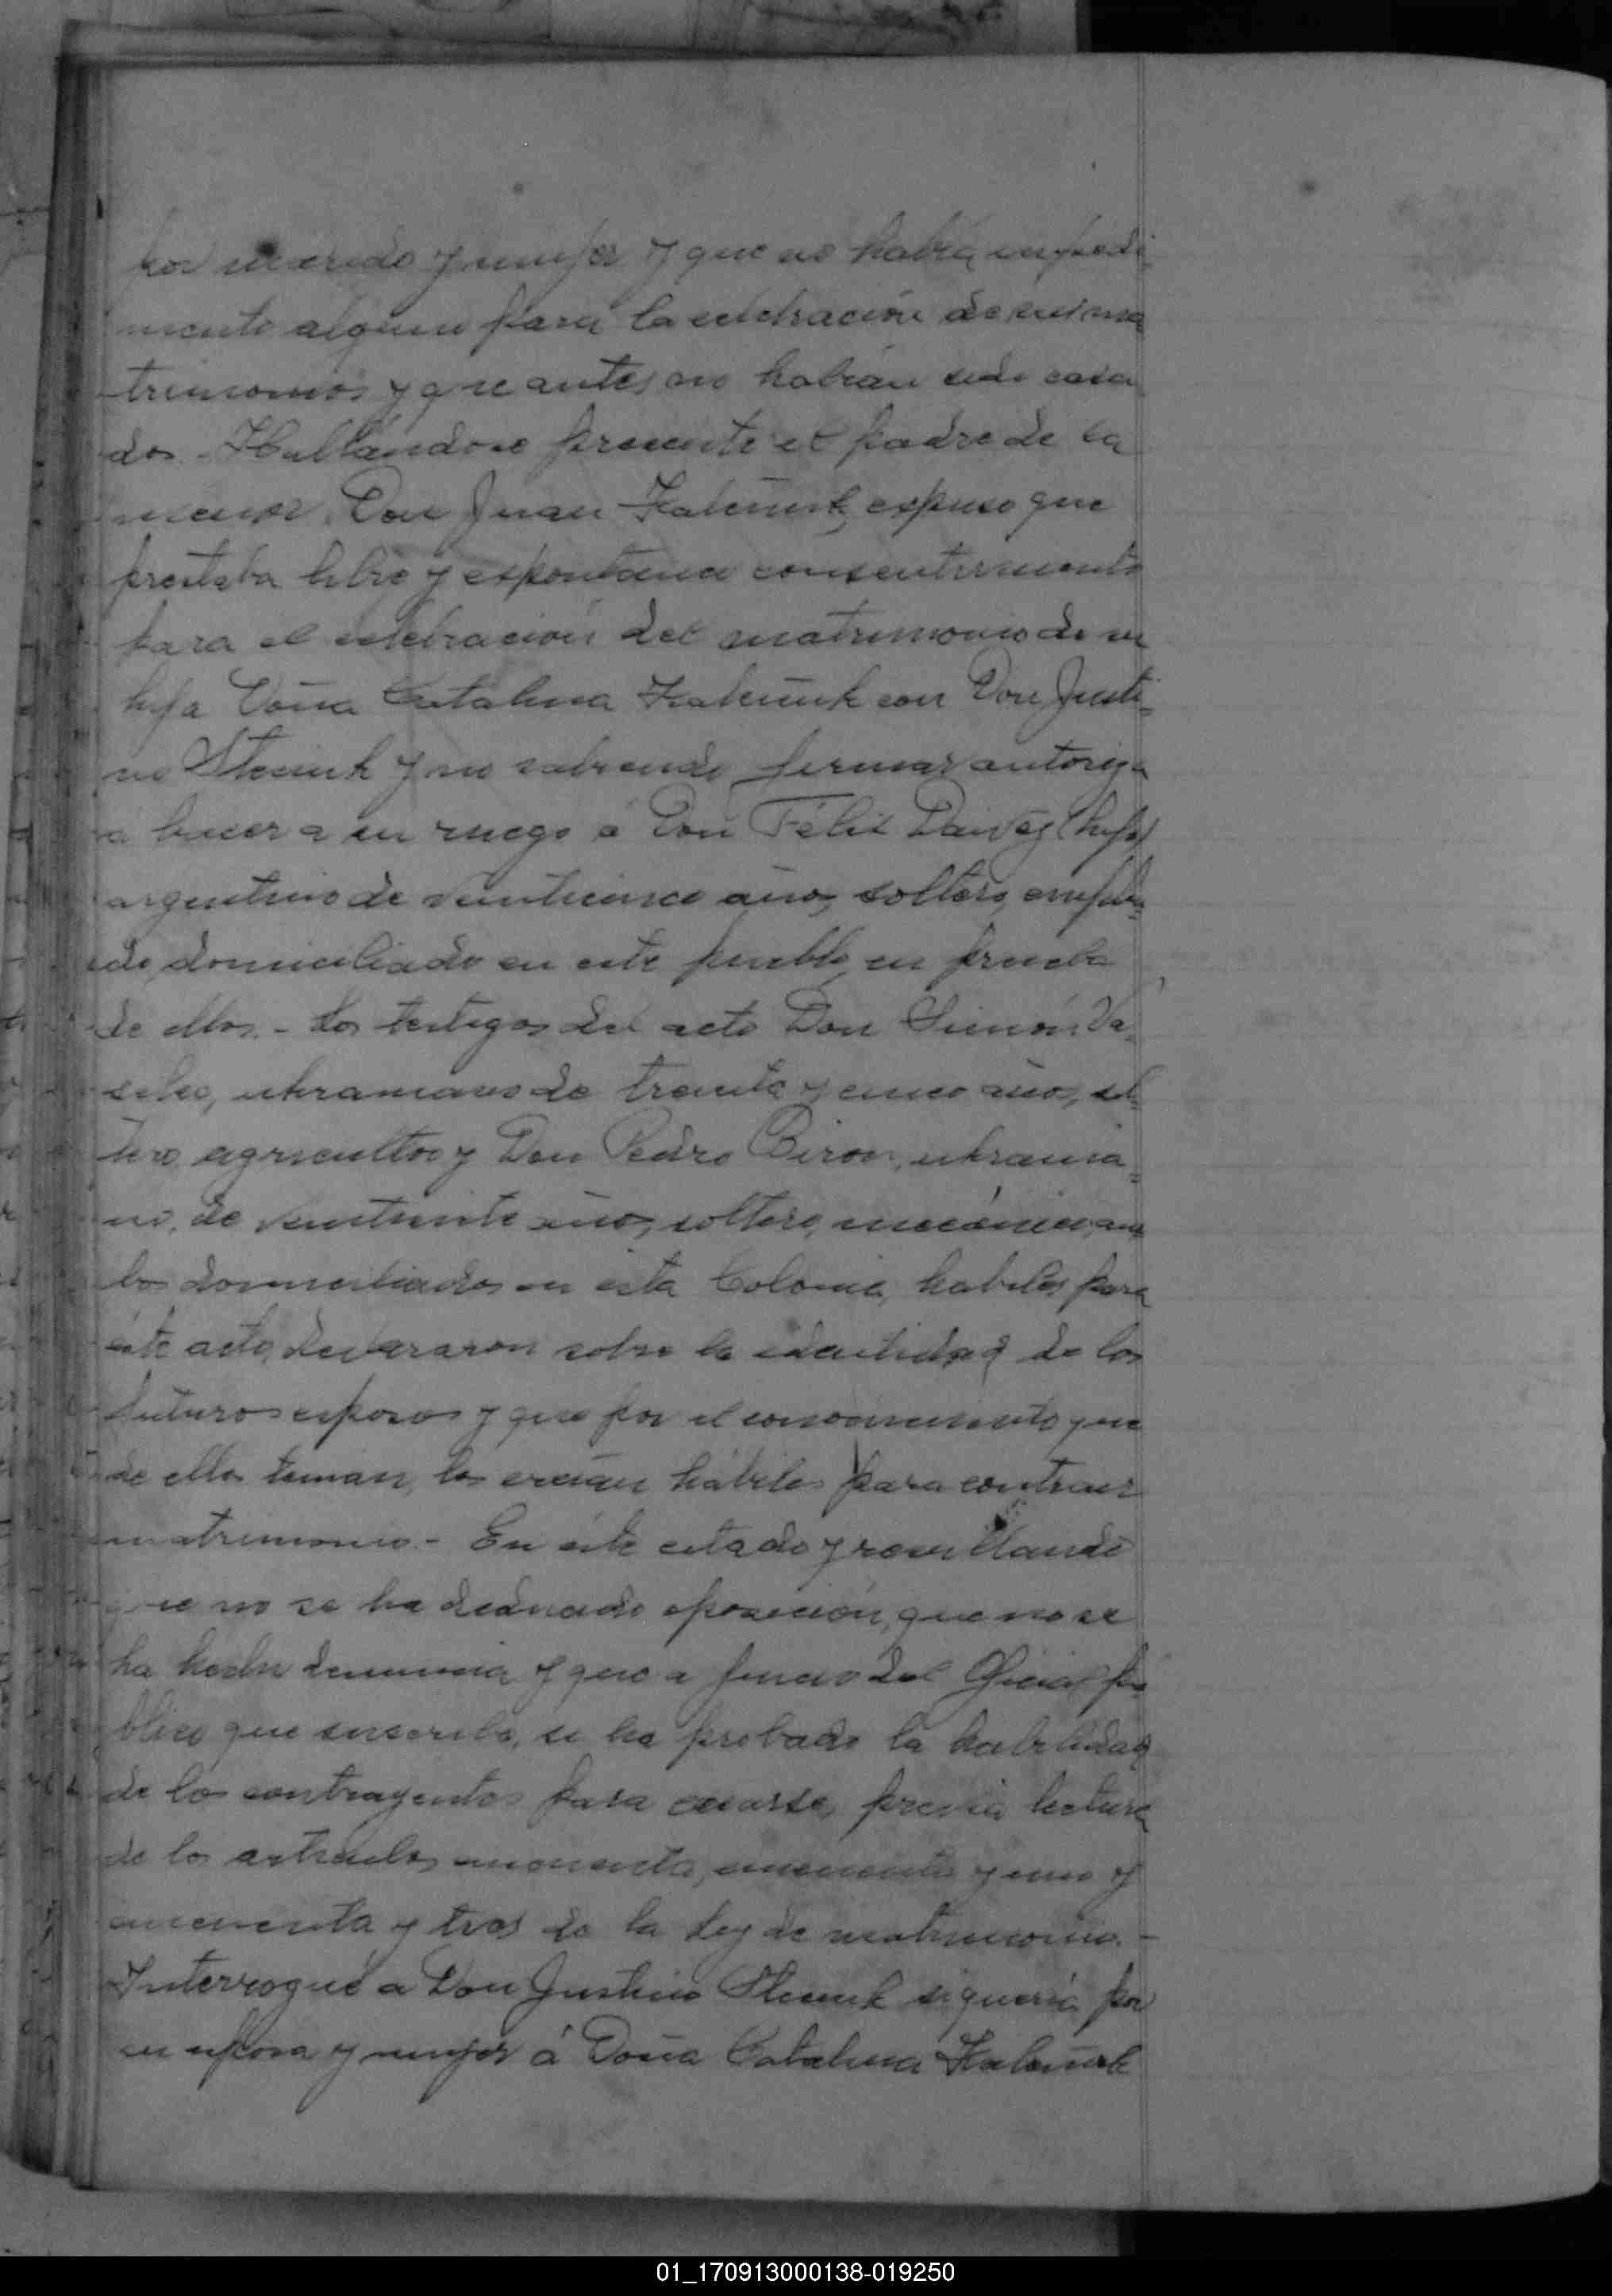 por marido y mujer y que no había impedi
mento alguno para la celebración de su ma
trimonio y que antes no habían sido casa
dos. - Hallándose presente el padre de la
menor, Don Juan expuso que
prestaba libre y espontanea consentimiento
para el celebración del matrimonio de su
hija Doña Catalina con Don Justi=
no y no sabiendo firmar autoriza
a hacer a su ruego á Don Félix (hijo)
argentino de veinticinco años, soltero, emplea=
do, domiciliado en este pueblo, en prueba
de ellos. - Los testigos del acto Don Simón Va
ukraniano de treinta y cinco años, sol=
tero, agricultor y Don Pedro Biron, ukrania=
no, de años, soltero, mecánico, am
bos domiciliados en esta Colonia, habiles para
éste acto, declararon sobre la identidad de los
futuros esposos y que por el conocimiento que
de ellos tenian, los creían hábiles para contraer
matrimonio. - En éste estado y resultando
que no se ha deducido oposición, que no se
ha hecho denuncia y que a juicio del Oficial pú
blico que suscribe, se ha probado la habilidad
de los contrayentes para casarse, previa lectura
de los articulos cincuenta, cincuenta y uno y
cincuenta y tres de la Ley de matrimonio. -
Interrogué a Don Justino si quería por
su esposa y mujer á Doña Catalina
01_170913000138-019250